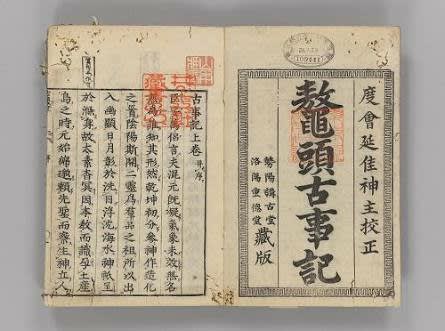 度會延佳神主校正
鼇頭古事記
勢陽講古堂
洛陽重
藏版
古事記上卷 并序
臣安萬侶言夫混元既凝氣象未效無名
無爲誰知其形然乾坤初分參神作造化
之首陰陽斯開二靈爲羣品之祖所以出
入幽顯日月彰於洗目浮沈海水神祇呈
於滌身故太素杳冥因本教而識孕土產
島之時元始綿邈賴先聖而察生神立人